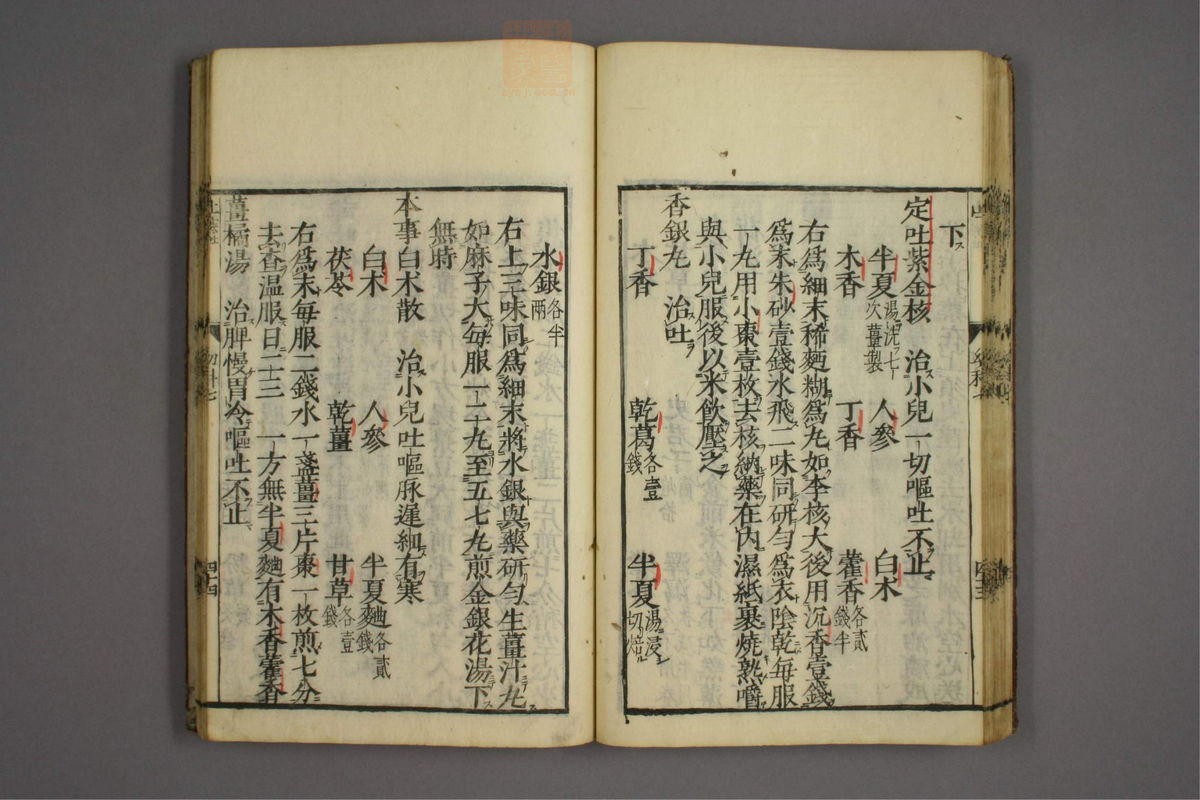 下
定吐紫金核　治小兒一切嘔吐不止
半夏湯洗七次薑製　人參　白朮
木香　丁香　藿香各貳錢半
右爲細末稀麪糊爲丸如李核大後用沉香壹錢
爲末朱砂壹錢水飛二味同研勻爲衣陰乾每服
一丸用小棗壹枚去核納藥在內濕紙裹燒熟嚼
與小兒服後以米飲壓之
香銀丸　治吐
丁香　乾葛各壹錢　半夏湯浸切焙
水銀各半兩
右上三味同爲細末將水銀與藥研勻生薑汁丸
如麻子大每服一二十丸至五七丸煎金銀花湯下
無時
本事白朮散　治小兒吐嘔脉遲細有寒
白朮　人參　半夏麯各貳錢
茯苓　乾薑　甘草各壹錢
右爲末每服二錢水一盞薑三片棗一枚煎七分
去查温服日二三　一方無半夏麯有木香藿香
薑橘湯　治脾慢胃冷嘔吐不止
四十四